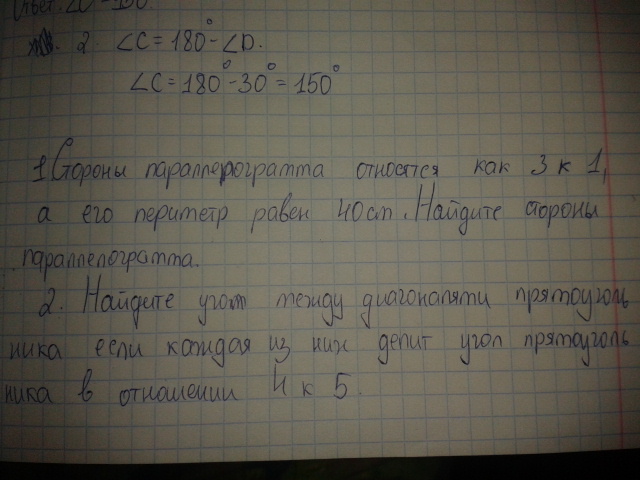 Ответ: ∠C = 150°
2. ∠C = 180° - ∠D.
∠C = 180° - 30° = 150°
1 Стороны параллелограмма относятся как 3 к 1,
а его периметр равен 40 см. Найдите стороны
параллелограмма.
2. Найдите угол между диагоналями прямоуголь
ника если каждая из них делит угол прямоуголь
ника в отношении 4 к 5.